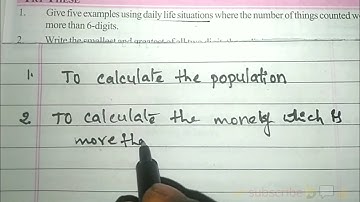 TRY THESE
1. Give five examples using daily life situations where the number of things counted w
more than 6-digits.
2. Write the smallest and greatest of all two digit
1. To calculate the population
2 To calculate the money which is
more tha
subscribe